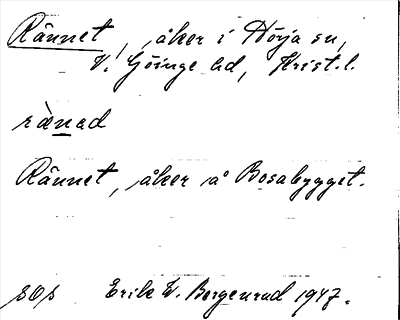 Rännet, åker i Hörja sn,
V. Göinge hd, Krist. l.
rænad
Rännet, åker å Bosabygget.
sOs Erik W. Bergenrud 1947.